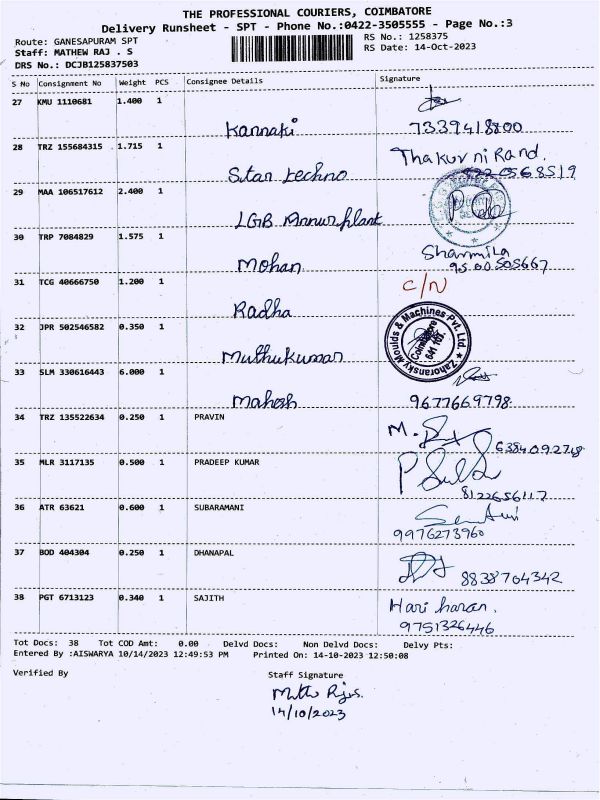 THE PROFESSIONAL COURIERS, COIMBATORE
Delivery Runsheet - SPT - Phone No.:0422-3505555 - Page No.:3
Route: GANESAPURAM SPT
RS No.: 1258375
Staff: MATHEW RAJ . S
RS Date: 14-Oct-2023
DRS No.: DCJB125837503
S No Consignment No Weight PCS Consignee Details Signature
27 KMU 1110681 1.400 1
Kannaki 7339418800
28 TRZ 155684315 1.715 1 Thakur ni Rand.
Star techno
29 MAA 106517612 2.400 1
LGB Annur plant
30 TRP 7084829 1.575 1 Sharmila
Mohan 9500505667
31 TCG 40666750 1.200 1 C/N
Radha
32 JPR 502546582 0.350 1 Zahoransky Moulds & Machines Pvt. Ltd.
Coimbatore
641 107.
Muthukumar
33 SLM 330616443 6.000 1
Mahesh 9677669798
34 TRZ 135522634 0.250 1 PRAVIN
6384092748
35 MLR 3117135 0.500 1 PRADEEP KUMAR
8122656117
36 ATR 63621 0.600 1 SUBARAMANI
9976273960
37 BOD 404304 0.250 1 DHANAPAL
8838704342
38 PGT 6713123 0.340 1 SAJITH Hari haran.
9751326446
Tot Docs: 38 Tot COD Amt: 0.00 Delvd Docs: Non Delvd Docs: Delvy Pts:
Entered By :AISWARYA 10/14/2023 12:49:53 PM Printed On: 14-10-2023 12:50:08
Verified By Staff Signature
14/10/2023